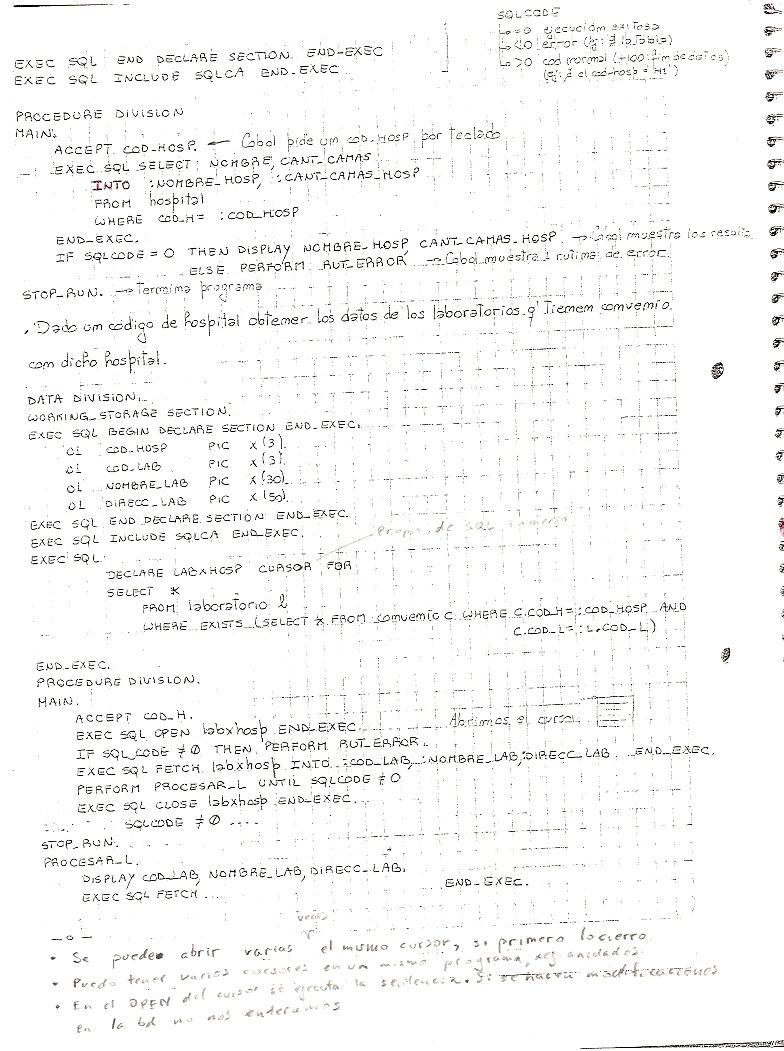 SQLCODE
↳ =0 ejecución exitosa
↳ <0 error (ej: ∄ la tabla)
↳ >0 cod normal (+100: fin de datos)
(ej: ∄ el cod-hosp = 'H1')
EXEC SQL END DECLARE SECTION END-EXEC
EXEC SQL INCLUDE SQLCA END-EXEC
PROCEDURE DIVISION
MAIN.
ACCEPT COD-HOSP. ← Cobol pide un COD-HOSP por teclado
EXEC SQL SELECT NOMBRE, CANT_CAMAS
INTO :NOMBRE_HOSP, :CANT_CAMAS_HOSP
FROM hospital
WHERE COD_H = :COD_HOSP
END_EXEC.
IF SQLCODE = 0 THEN DISPLAY NOMBRE_HOSP, CANT_CAMAS_HOSP → Cobol muestra los result.
ELSE PERFORM RUT_ERROR → Cobol muestra 1 rutina de error
STOP_RUN. → Termina programa
. Dado un código de hospital obtener los datos de los laboratorios q' tienen convenio
con dicho hospital.
DATA DIVISION.
WORKING_STORAGE SECTION.
EXEC SQL BEGIN DECLARE SECTION END_EXEC.
01 COD_HOSP PIC X(3).
01 COD_LAB PIC X(3).
01 NOMBRE_LAB PIC X(30).
01 DIRECC_LAB PIC X(50).
EXEC SQL END DECLARE SECTION END_EXEC.
EXEC SQL INCLUDE SQLCA END_EXEC.
EXEC SQL propio de SQL
DECLARE LABXHOSP CURSOR FOR
SELECT *
FROM laboratorio l
WHERE EXISTS (SELECT * FROM convenio C WHERE C.COD_H = :COD_HOSP AND
C.COD_L = :L.COD_L)
END_EXEC.
PROCEDURE DIVISION.
MAIN.
ACCEPT COD_H.
EXEC SQL OPEN labxhosp END_EXEC. Abrimos el cursor
IF SQL_CODE ≠ 0 THEN PERFORM RUT_ERROR.
EXEC SQL FETCH labxhosp INTO :COD_LAB, :NOMBRE_LAB, :DIRECC_LAB END_EXEC.
PERFORM PROCESAR_L UNTIL SQLCODE ≠ 0
EXEC SQL CLOSE labxhosp END_EXEC.
SQLCODE ≠ 0 ....
STOP_RUN.
PROCESAR_L.
DISPLAY COD_LAB, NOMBRE_LAB, DIRECC_LAB.
EXEC SQL FETCH ... END_EXEC.
—o—
veces
• Se puede abrir varias el mismo cursor, si primero lo cierro
• Puedo tener varios cursores en un mismo programa, anidados.
• En el OPEN del cursor se ejecuta la sentencia. Si se hacen modificaciones
en la bd no nos enteramos